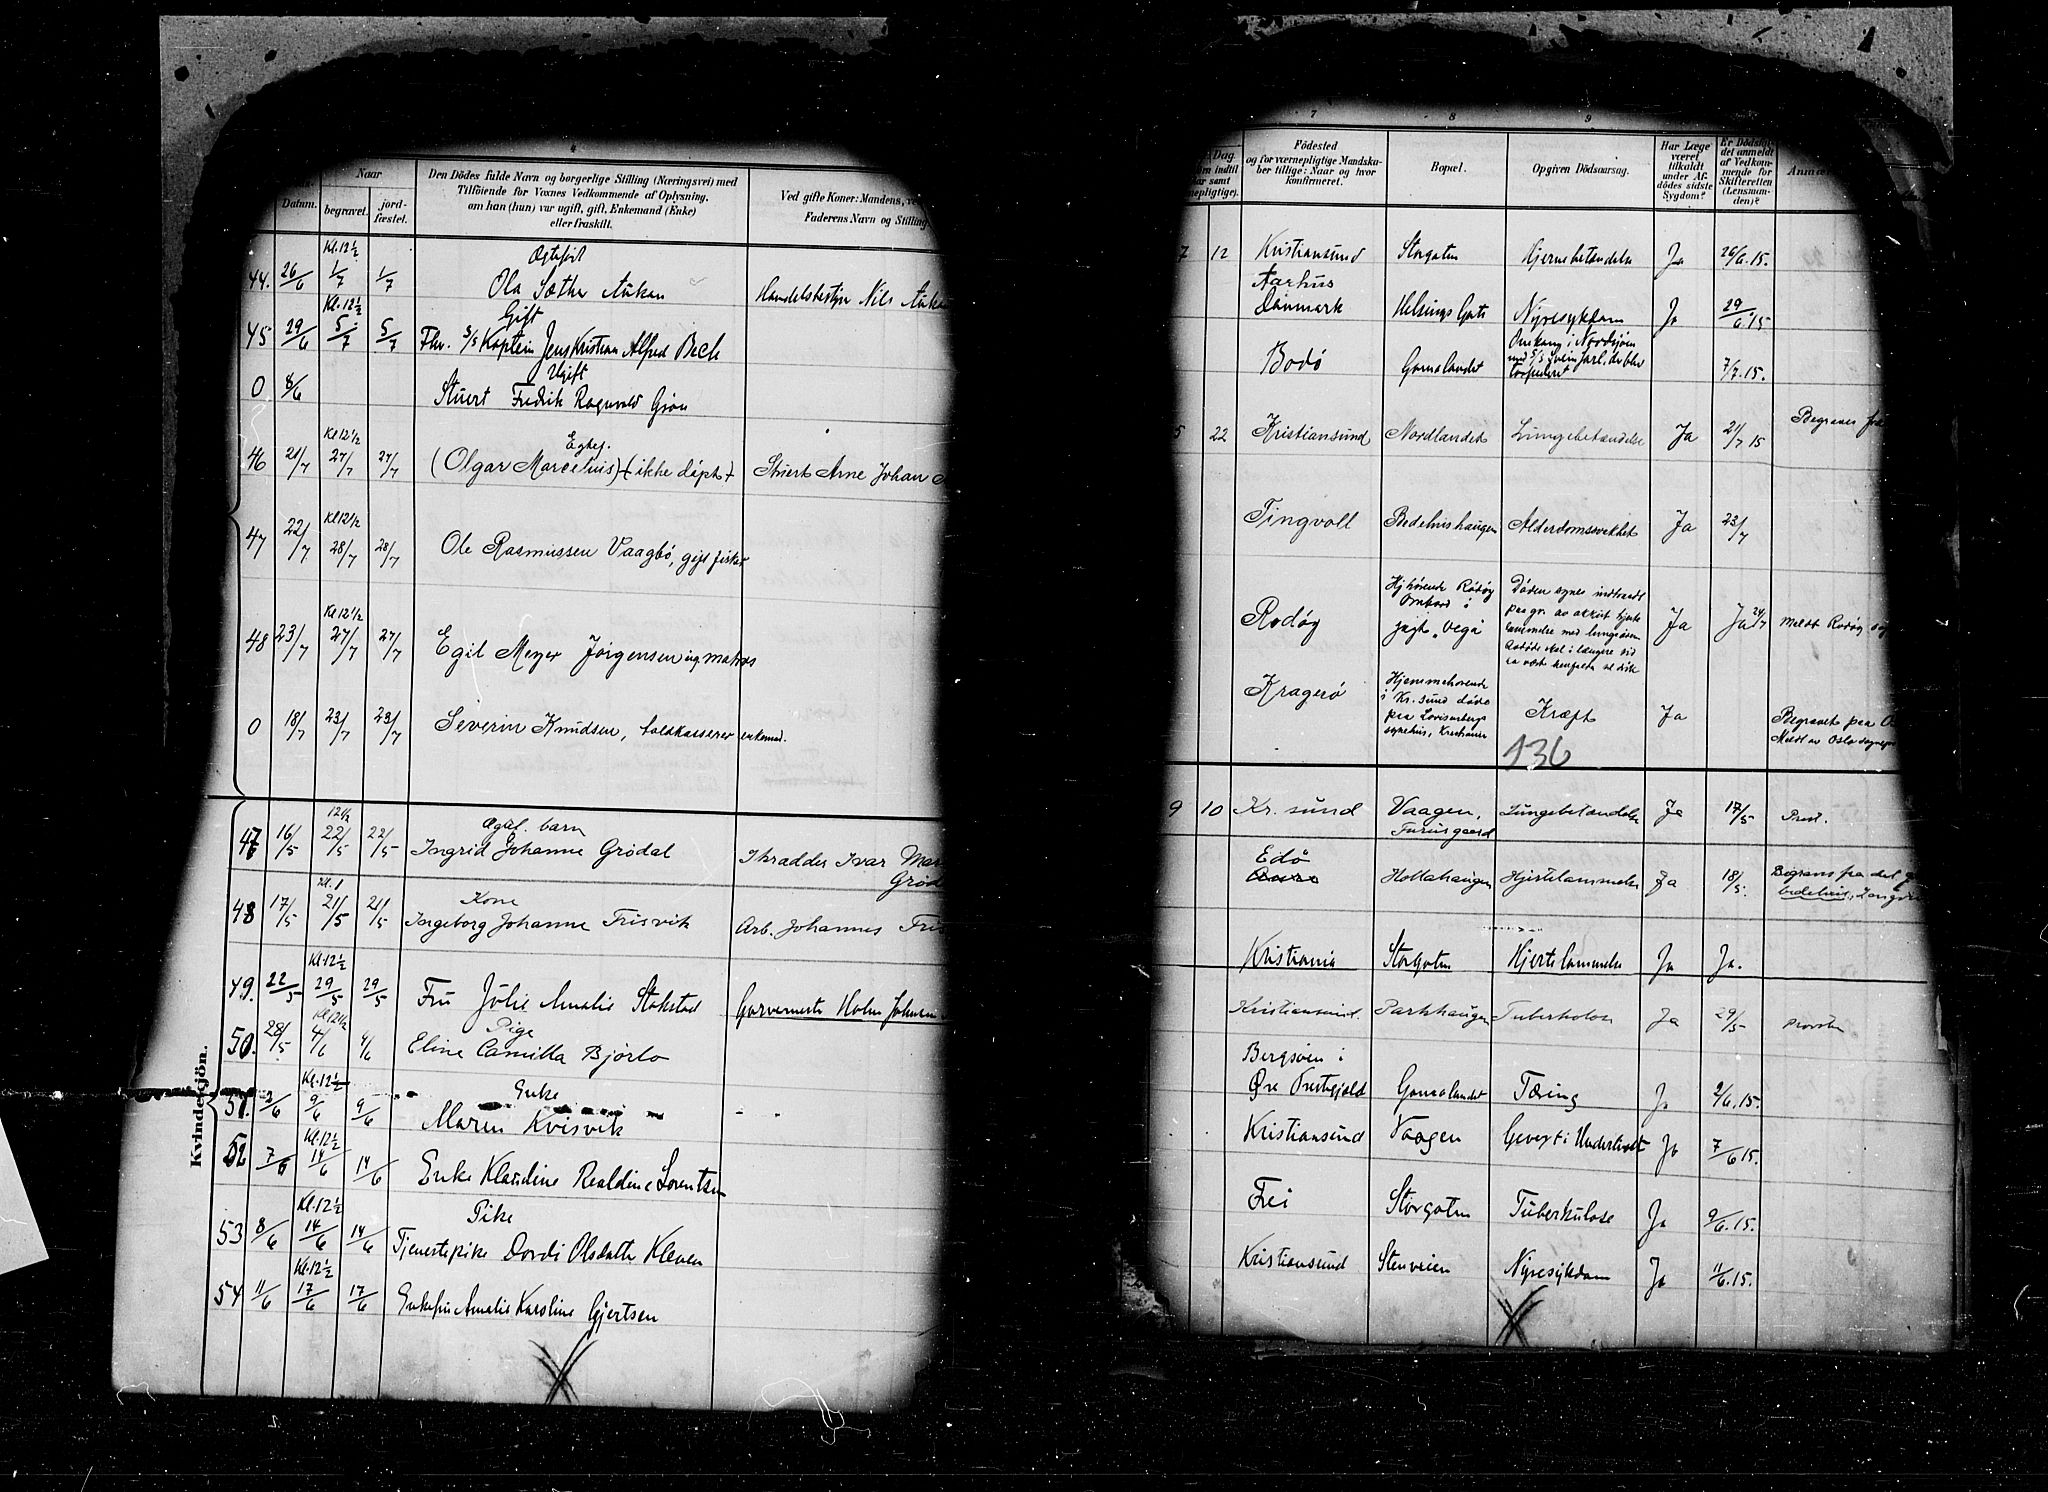 4
Naar
Datum.
begravet.
jord-
fæstet.
Den Dödes fulde Navn og borgerlige Stilling (Næringsvei) med
Tilföiende for Voxnes Vedkommende af Oplysning,
om han (hun) var ugift, gift, Enkemand (Enke)
eller fraskilt.
Ved gifte Koner: Mandens, ve
Faderens Navn og Stilling
Kl. 12 1/2
Ola Sæther Aukan
44. 26/6 1/7 1/7
Handelsbestyr Nils
Kl. 12 1/2
Gift
45 29/6 5/7 5/7 Fhv. S/S Kaptein Jens Kristian Alfred Bech
Ugift
0 8/6
Stuert Fredrik Ragnvald
Kl 12 1/2
Egtef.
46 21/7 27/7 27/7 (Olgar Marcelius) (ikke döpt)
Stuert Arne Johan
Kl 12 1/2
47 22/7 28/7 28/7 Ole Rasmussen Vaagbø, gift fisker
Kl 12 1/2
48 23/7 27/7 27/7 Egil Meyer Jørgensen ug matros
0 18/7 23/7 23/7 Severin Knudsen, toldkasserer enkemd.
Kvindekjön.
12 1/2
barn
47 16/5 22/5 22/5 Ingrid Johanne Grødal
Ivar Mar
Grød
Kl. 1
Kone
48 17/5 21/5 21/5 Ingeborg Johanne Frisvik
Arb. Johannes Fris
Kl. 12 1/2
49. 22/5 29/5 29/5 Fru Julie Amalie Stokstad
Garvermester Holm Johnsen
Kl 12 1/2
Pige
50. 28/5 4/6 4/6 Eline Camilla Bjørlo
Kl. 12 1/2
Enke
51. 2/6 9/6 9/6 Maren Kvisvik
Kl. 12 1/2
52 7/6 14/6 14/6 Enke Klaudine Realdine Lorentsen
Kl. 12 1/2
Pike
53 8/6 14/6 14/6 Tjenestepike Dordi Olsdatter Kleven
Kl. 12 1/2
54 11/6 17/6 17/6 Enkefru Amalie Karoline Gjertsen
7
8
9
Dag
Födested
og for værnepligtige Mandska-
ber tillige: Naar og hvor
konfirmeret.
Bopæl.
Opgiven Dödsaarsag.
Har Læge
været
tilkaldt
under Af-
dödes sidste
Sygdom?
Er Dödsfal-
det anmeldt
af Vedkom-
mende for
Skifteretten
(Lensman-
den)?
Anmær
7 12 Kristiansund Storgaten Hjernebetændelse Ja 26/6.15.
Aarhus
Danmark Helsings Gate Nyresykdom Ja 29/6.15
Bodø Gomalandet
Omkom i Nordsjøen
med S/S Svein Jarl, der blev
torpedert
7/7.15.
5 22 Kristiansund Nordlandet Lungebetændelse Ja 21/7 15
Begraves fra
Tingvoll Bedehushaugen Alderdomssvekket Ja 23/7
Rødøy
Hjhørende Rødøy
Ombord i
jagt "Vega"
Døden synes indtraadt
paa gr. av akkut hjerte
lammelse med lungeødem
Ja Ja 24/7
Meldt Rødøy
Kragerø
Hjemmehørende
i Kr.sund døde
paa Lovisenbergs
sykehus, Kristiania
Kræft Ja
Begravet paa
Meldt av Oslo sognepr
136
9 10 Kr.sund Vaagen, Lungebetændelse Ja 17/5 Prest.
Edö
Hollahaugen Hjertelammelse Ja 18/5
Begraves fra det
bedehus,
Kristiania Storgaten Hjertelammelse Ja Ja.
Kristiansund. Parkhaugen Tuberkulose Ja 29/5 provsten
Bergsöen i
Øre Prestegjeld Gomalandet Tæring Ja 2/6.15.
Kristiansund Vaagen Gevext i Underlivet Ja 7/6 15.
Frei Storgaten Tuberkulose Ja 9/6.15.
Kristiansund Stenveien Nyresykdom Ja 11/6.15.